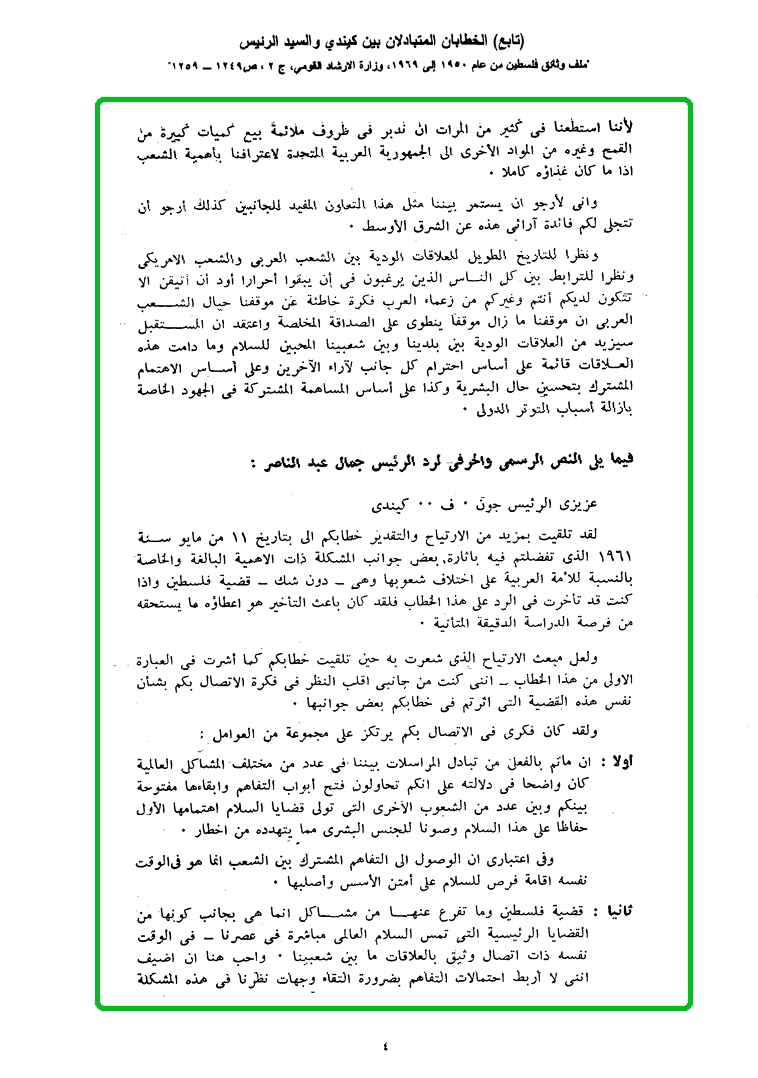 (تابع) الخطابان المتبادلان بين كيندي والسيد الرئيس
"ملف وثائق فلسطين من عام ١٩٥٠ إلى ١٩٦٩، وزارة الارشاد القومي، ج ٢، ص١٢٤٩ – ١٢٥٩"
لأننا استطعنا فى كثير من المرات ان ندبر فى ظروف ملائمة بيع كميات كبيرة من
القمح وغيره من المواد الأخرى الى الجمهورية العربية المتحدة لاعترافنا بأهمية الشعب
اذا ما كان غذاؤه كاملا ٠
وانى لأرجو ان يستمر بيننا مثل هذا التعاون المفيد للجانبين كذلك أرجو أن
تتجلى لكم فائدة آرائى هذه عن الشرق الأوسط ٠
ونظرا للتاريخ الطويل للعلاقات الودية بين الشعب العربى والشعب الامريكى
ونظرا للترابط بين كل النـاس الذين يرغبون فى أن يبقوا أحرارا أود أن أتيقن الا
تتكون لديكم أنتم وغيركم من زعماء العرب فكرة خاطئة عن موقفنا حيال الشـــعب
العربى ان موقفنا ما زال موقفا ينطوى على الصداقة المخلصة واعتقد ان المســـتقبل
سيزيد من العلاقات الودية بين بلدينا وبين شعبينا المحبين للسلام وما دامت هذه
العـلاقات قائمة على أساس احترام كل جانب لآراء الآخرين وعلى أســاس الاهتمام
المشترك بتحسين حال البشرية وكذا على أساس المساهمة المشتركة فى الجهود الخاصة
بازالة أسباب التوتر الدولى ٠
فيما يلى النص الرسمى والحرفى لرد الرئيس جمال عبد الناصر :
عزيزى الرئيس جون ٠ ف ٠٠ كيندى
لقد تلقيت بمزيد من الارتياح والتقدير خطابكم الى بتاريخ ١١ من مايو سـنة
١٩٦١ الذى تفضلتم فيه باثارة بعض جوانب المشكلة ذات الاهمية البالغة والخاصة
بالنسبة للأمة العربية على اختلاف شعوبها وهى ـ دون شك ـ قضية فلسطين واذا
كنت قد تأخرت فى الرد على هذا الخطاب فلقد كان باعث التأخير هو اعطاؤه ما يستحقه
من فرصة الدراسة الدقيقة المتأنية ٠
ولعل مبعث الارتياح الذى شعرت به حين تلقيت خطابكم كما أشرت فى العبارة
الاولى من هذا الخطاب ـ اننى كنت من جانبى اقلب النظر فى فكرة الاتصال بكم بشأن
نفس هذه القضية التى اثرتم فى خطابكم بعض جوانبها ٠
ولقد كان فكرى فى الاتصال بكم يرتكز على مجموعة من العوامل :
أولا : ان ماتم بالفعل من تبادل المراسلات بيننا فى عدد من مختلف المشاكل العالمية
كان واضحا فى دلالته على انكم تحاولون فتح أبواب التفاهم وابقاءها مفتوحة
بينكم وبين عدد من الشعوب الأخرى التى تولى قضايا السلام اهتمامها الأول
حفاظا على هذا السلام وصونا للجنس البشرى مما يتهدده من اخطار ٠
وفى اعتبارى ان الوصول الى التفاهم المشترك بين الشعب انما هو فى الوقت
نفسه اقامة فرص للسلام على أمتن الأسس وأصلبها ٠
ثانيا : قضية فلسطين وما تفرع عنهـــا من مشــاكل انما هى بجانب كونها من
القضايا الرئيسية التى تمس السلام العالمى مباشرة فى عصرنا ـ فى الوقت
نفسه ذات اتصال وثيق بالعلاقات ما بين شعبينا ٠ واحب هنا ان اضيف
اننى لا أربط احتمالات التفاهم بضرورة التقاء وجهات نظرنا فى هذه المشكلة
٤